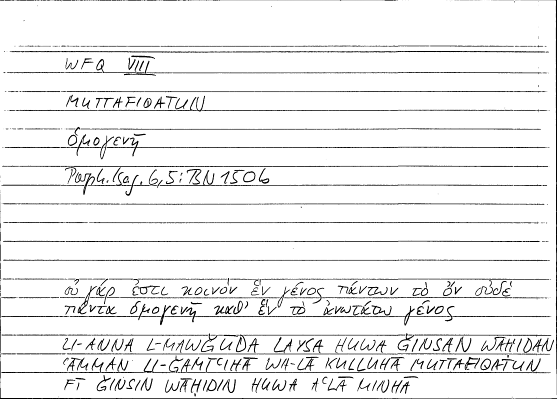 WFQ VIII
MUTTAFIQATUN
ὁμογενῆ
Porph. Isag. 6,5: BN 150b
οὐ γάρ ἐστι κοινὸν ἓν γένος πάντων τὸ ὂν οὐδὲ
πάντα ὁμογενῆ καθ’ ἓν τὸ ἀνωτάτω γένος
LI-ANNA L-MAWǦŪDA LAYSA HUWA ǦINSAN WĀḤIDAN
ʿĀMMAN LI-ǦAMĪʿIHĀ WA-LĀ KULLUHĀ MUTTAFIQATUN
FĪ ǦINSIN WĀḤIDIN HUWA AʿLĀ MINHĀ